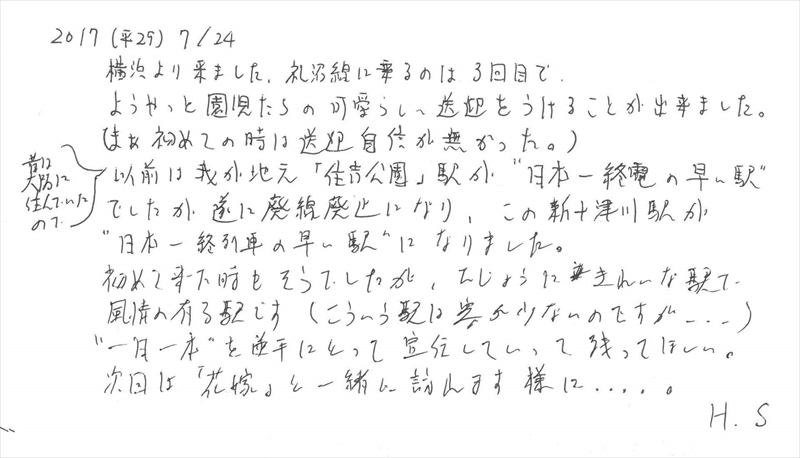 2017 (平29) 7/24
横浜より来ました。札沼線に乗るのは3回目で
ようやっと園児たちの可愛らしい送迎をうけることが出来ました。
(まぁ初めての時は送迎自信が無かった。)
前は
大阪に
住んでいた
ので
以前は我が地元「住吉公園」駅が"日本一終電の早い駅"
でしたが遂に廃線廃止になり、この新十津川駅が
"日本一終列車の早い駅"になりました。
初めて来た時もそうでしたが、ひじょうにきれいな駅で
風情の有る駅です(こういう駅は客が少ないのですが...)
"一日一本"を逆手にとって宣伝していって残ってほしい。
次回は「花嫁」と一緒に訪れます様に.....。
H.S